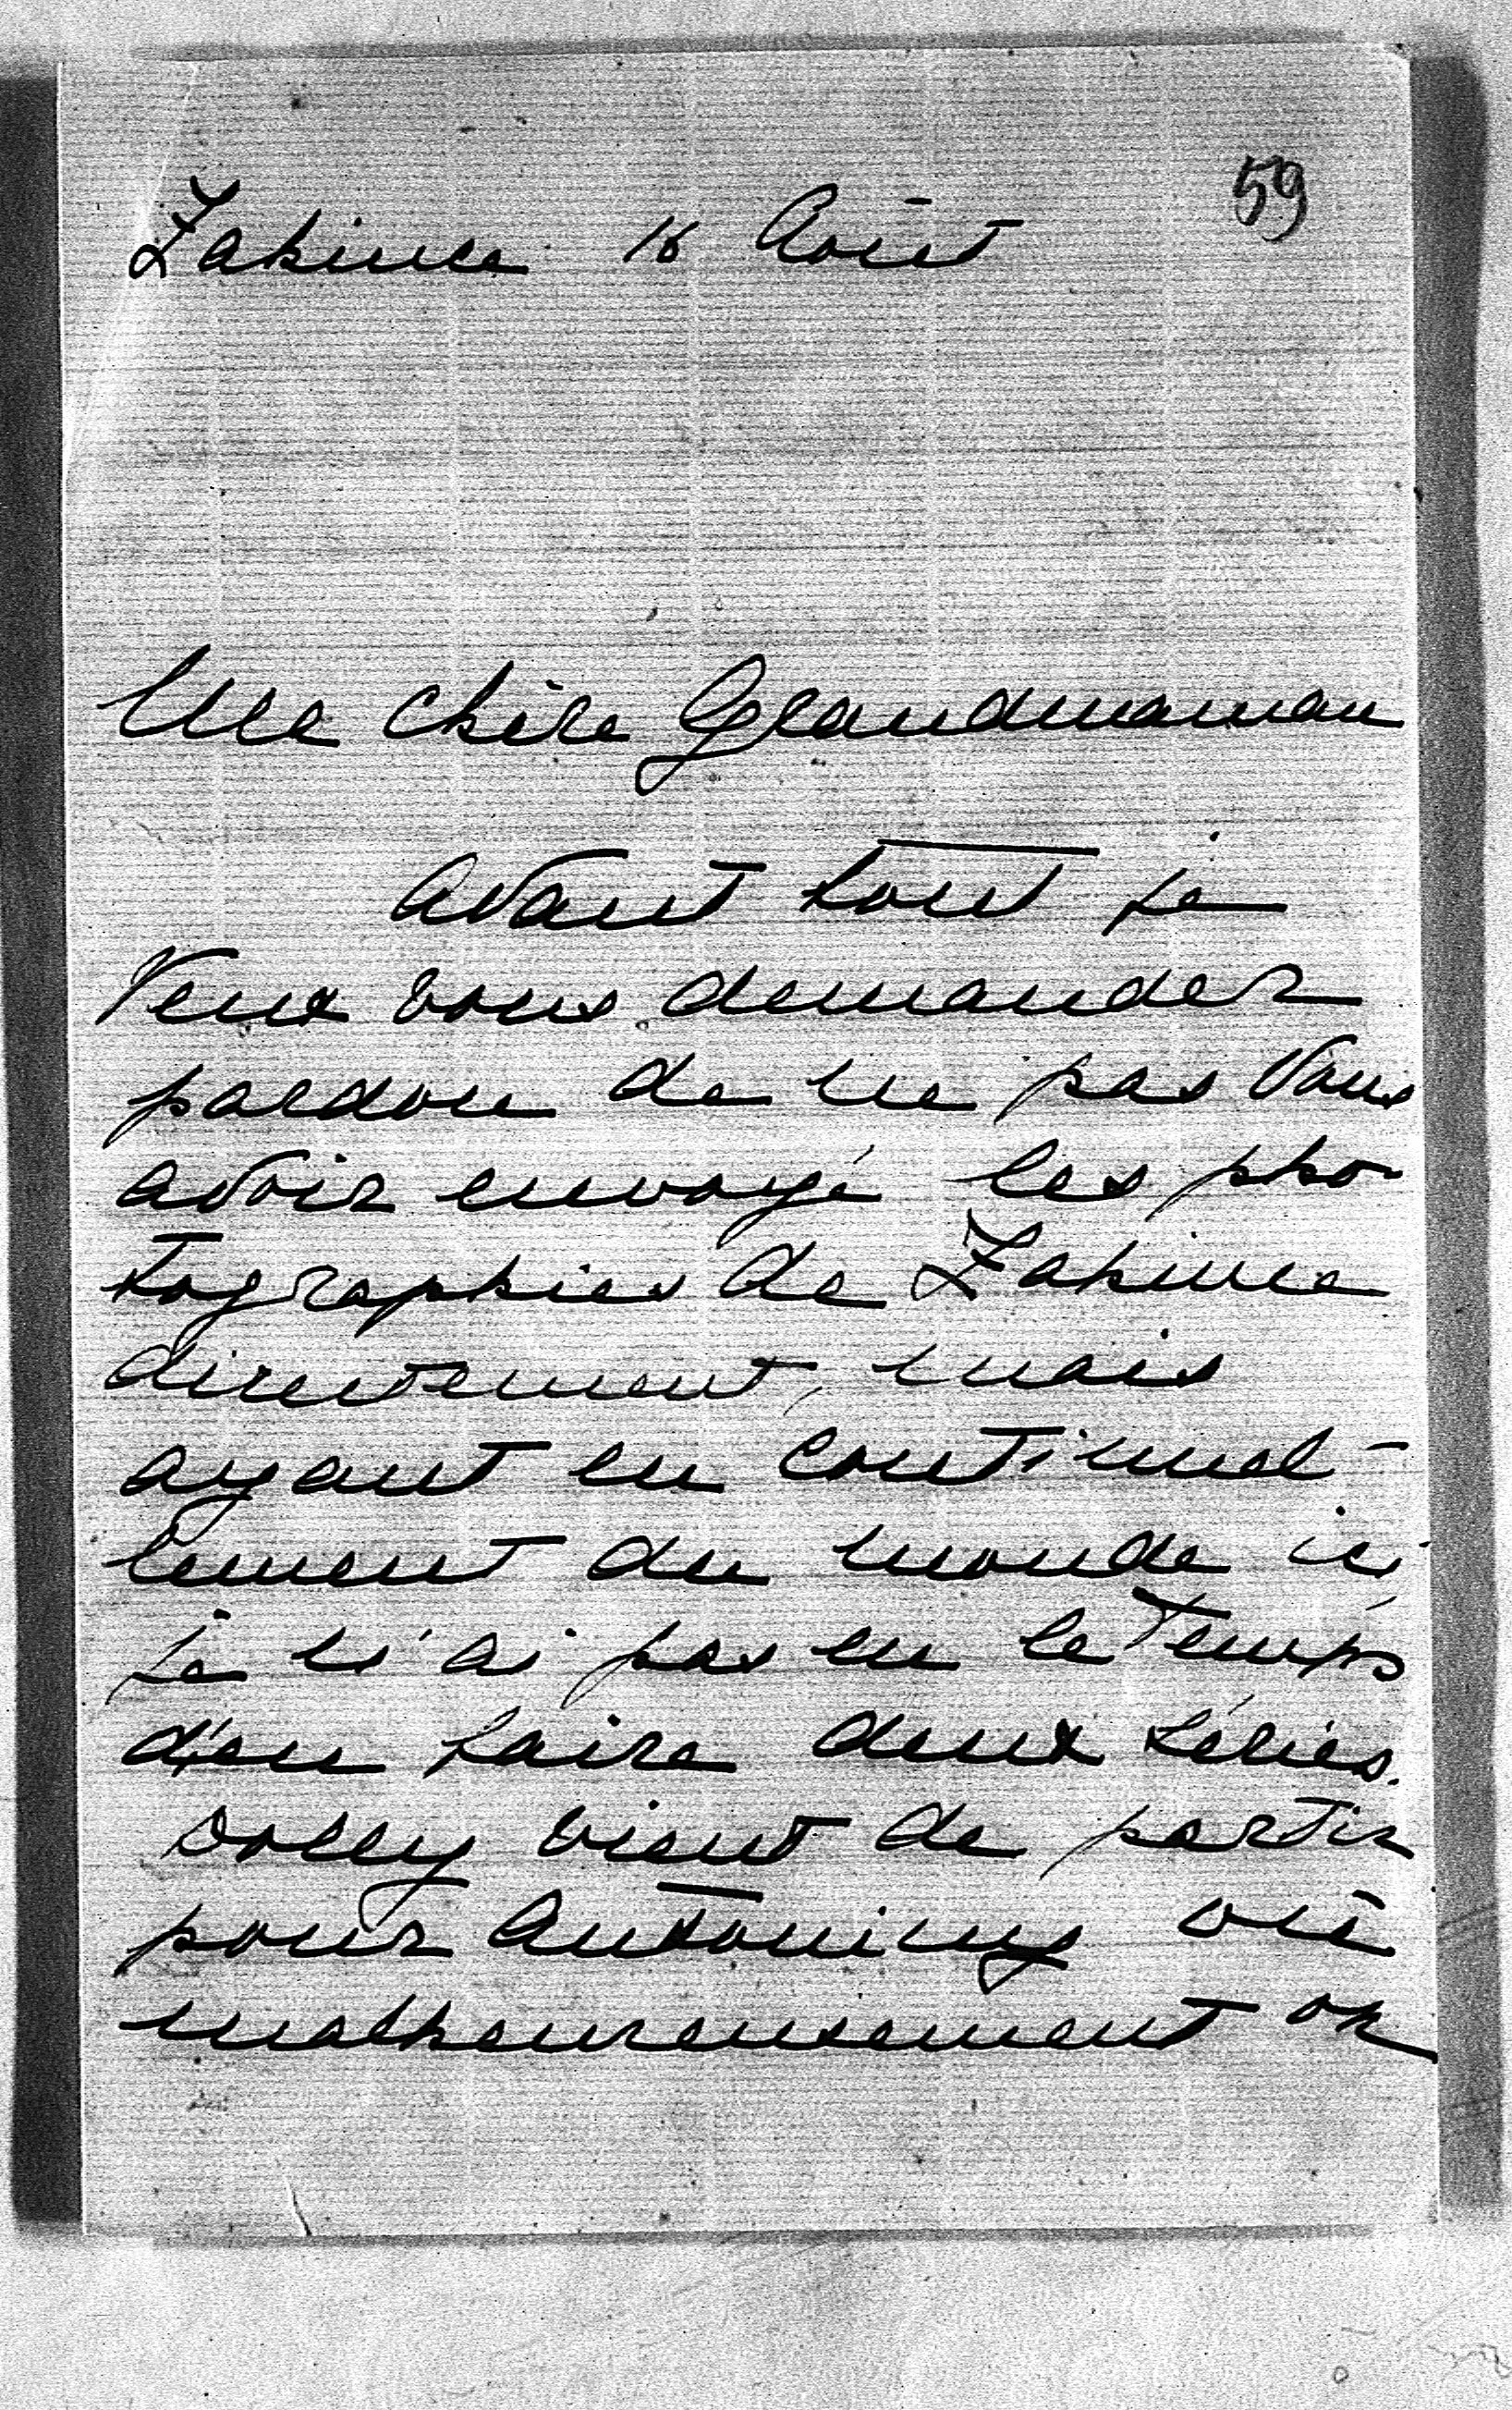 59
Zakince 16 Août
Ma chère Grandmaman
Avant tout je
veux vous demander
pardon de ne pas vous
avoir envoyé les pho-
tographies de Zakince
directement, mais
ayant eu continuel-
lement du monde ici
je n'ai pas eu le temps
d'en faire deux séries.
Dolly vient de partir
pour Antoniny où
malheureusement on